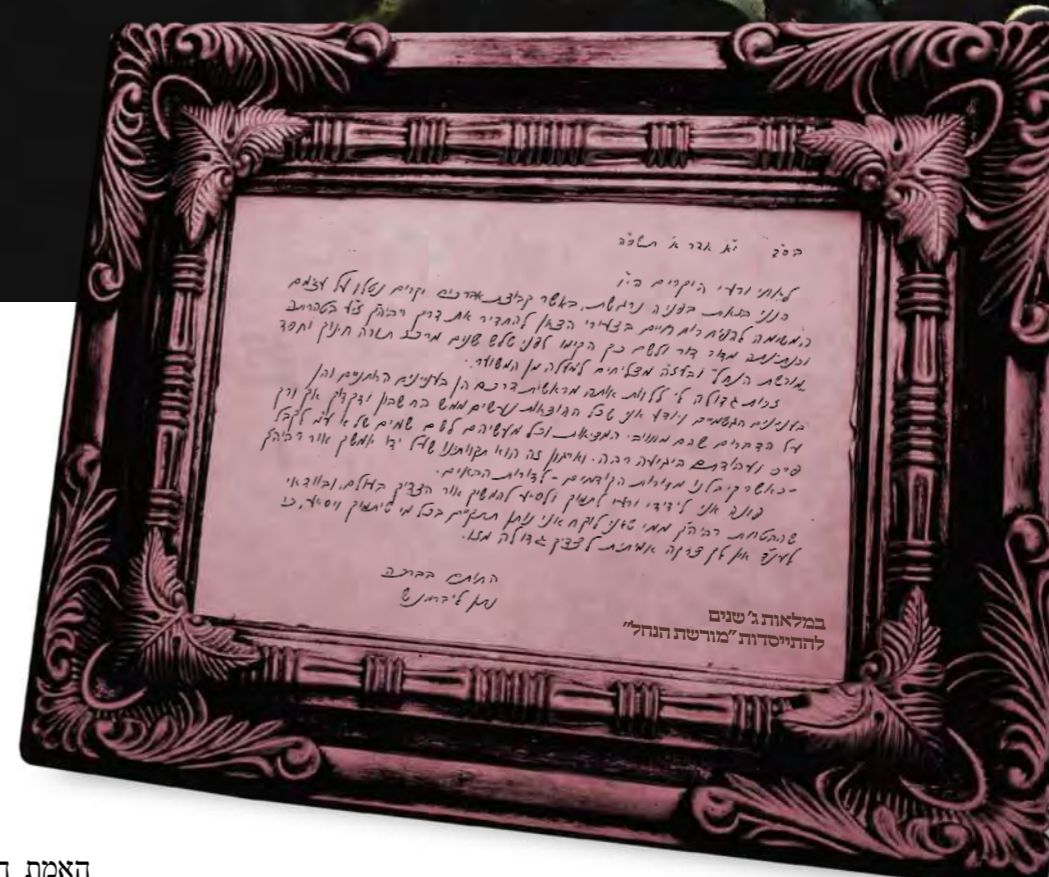 בס"ד י"א אדר א'
לאחי ורעי היקרים הי"ו
הנני בזאת בפניה נרגשת, באשר קבוצת אברכים יקרים נטלו על עצמם
המשימה להפיח רוח חיים בצעירי הצאן להחדיר את דרך רביה"ק זי"ע בטהרתה
וכנתינתה מדור דור ולשם כך הקימו לפני שלש שנים מרכז תורה חינוך וחסד
"מורשת הנחל" ובעזה"י מצליחים למעלה מן המשוער.
זכות גדולה לי ללוות אותם מראשית דרכם הן בענינים הרוחניים והן
בענינים הגשמיים ויודע אני שכל ההוצאות נעשים ממש בחשבון ודקדוק אך ורק
על הדברים שהם מחויבי המציאות, וכל מעשיהם לשם שמים שלא ע"מ לקבל
פרס ועבודתם ביגיעה רבה. וארגון זה הוא תקוותינו שעל ידו ימשך אור רביה"ק
- כאשר קיבלנו מדורות הקודמים - לדורות הבאים.
פונה אני לידידי ורעי לתמוך ולסייע להמשיך אור הצדיק בעולם, ובוודאי
שהבטחת רביה"ק ממי שאני לוקח אני נותן תתקיים בכל מי שיתמוך ויסייע, כי
לענ"ד אין לך צדקה אמיתית לצדיק גדולה מזו.
החותם בברכה
נתן ליברמנש
במלאות ג' שנים
להתייסדות "מורשת הנחל"
האמת